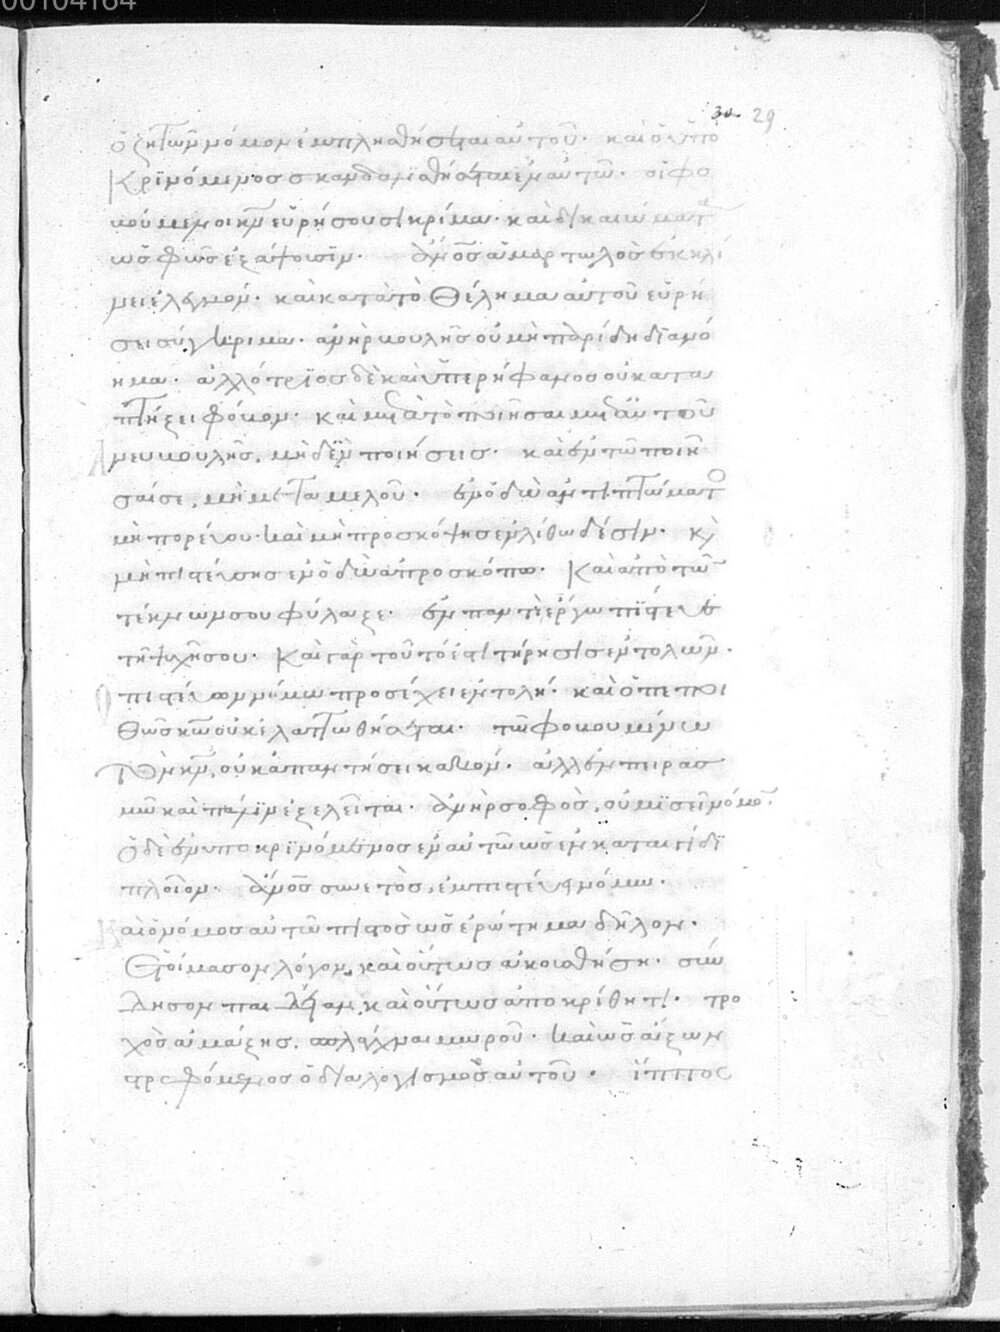 00104164
30 29
ὁ ζητῶν νόμον ἐμπλησθήσεται αὐτοῦ· καὶ ὁ ὑπο
κρινόμενος σκανδαλισθήσεται ἐν αὐτῶ· οἱ φο
βούμενοι κν εὑρήσουσι κρίμα· καὶ δικαιώματα
ὡς φῶς ἐξάψουσιν· ἄνος ἁμαρτωλὸς ἐκκλί
νει ἐλεγμόν· καὶ κατὰ τὸ θέλημα αὐτοῦ εὑρή
σει σύγκριμα· ἀνὴρ βουλῆς οὐ μὴ παρίδη διανό
ημα· ἀλλότριος δὲ καὶ ὑπερήφανος οὐ κατα
πτήξει φόβον· καὶ μετὰ τὸ ποιῆσαι μετ' αὐτοῦ
ἄνευ βουλῆς, μηδὲν ποιήσεις· καὶ ἐν τῶ ποιῆ
σαί σε, μὴ μεταμελοῦ· ἐν ὁδῶ ἀντιπτώματος
μὴ πορεύου· καὶ μὴ προσκόψης ἐν λιθώδεσιν· κὶ
μὴ πιστεύσης ἐν ὁδῶ ἀπροσκόπω· καὶ ἀπὸ τῶν
τέκνων σου φύλαξε· ἐν παντὶ ἔργω πίστευε
τῆ ψυχῆ σου· καὶ γὰρ τοῦτό ἐστι τήρησις ἐντολῶν·
ὁ πιστεύων νόμω προσέχει ἐντολῆ· καὶ ὁ πεποι
θὼς κω οὐκ ἐλαττωθήσεται· τῶ φοβουμένω
τὸν κν, οὐκ ἀπαντήσει κακόν· ἀλλ' ἐν πειρασ
μῶ καὶ πάλιν ἐξελεῖται· ἀνὴρ σοφὸς, οὐ μισεῖ νόμον·
ὁ δὲ ὑποκρινόμενος ἐν αὐτῶ ὡς ἐν καταιγίδι
πλοῖον· ἄνος συνετὸς, ἐμπιστεύσει νόμω·
καὶ ὁ νόμος αὐτῶ πιστὸς ὡς ἐρώτημα δήλων·
ἑτοίμασον λόγον, καὶ οὕτως ἀκουσθήση· σύν
δησον παιδείαν, καὶ οὕτως ἀποκρίθητι· τρο
χὸς ἁμάξης, σπλάγχνα μωροῦ· καὶ ὡς ἄξων
στρεφόμενος ὁ διαλογισμὸς αὐτοῦ· ἵππος